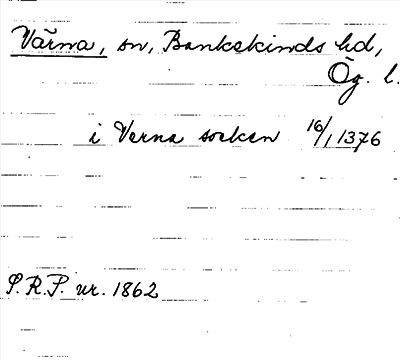 Värna, sn, Bankekinds hd,
Ög. l.
i Verna soeken 16/1 1376
S.R.P. nr. 1862